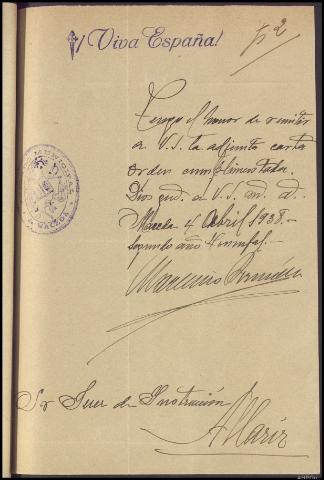 ¡Viva España!
Tengo el honor de remitir
a V.S. la adjunta carta
orden cumplimentada.
Dios gud. a V.S. m. a.
Maceda 4 Abril 1938.-
segundo año triunfal.-
Sr Juez de Instrucción
Allariz